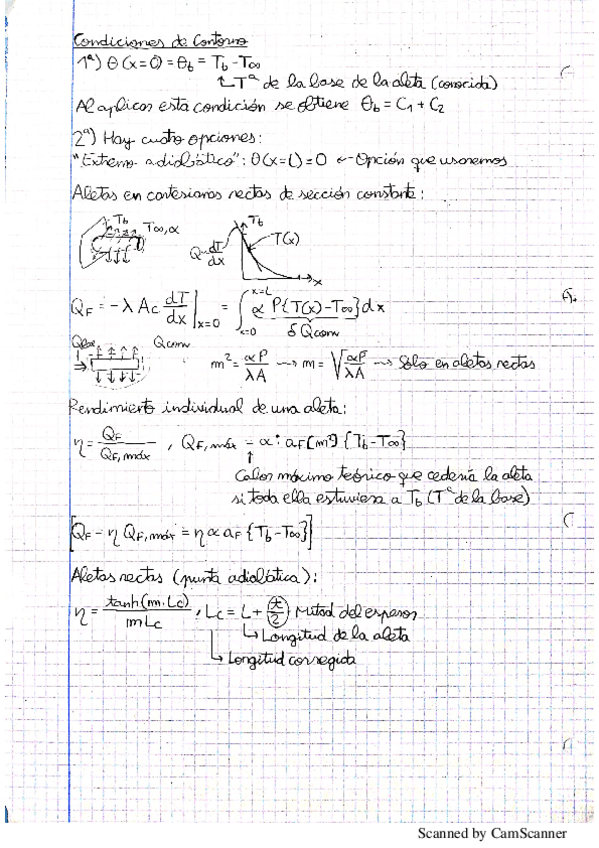 Condiciones de Contorno
1ª) θ(x=0) = θb = Tb - T∞
Tª de la base de la aleta (conocida)
Al aplicar esta condición se obtiene θb = C1 + C2
2ª) Hay cuatro opciones:
"Extremo adiabático": θ(x=L) = 0 ← Opción que usaremos
Aletas en cartesianas rectas de sección constante:
Tb T∞,α Tb
T(x)
Q~dT/dx
x
QF = -λ Ac dT/dx |x=0 = ∫x=0 x=L α P{T(x) - T∞}dx
δQconv
Qconv
m² = αP/λA → m = √αP/λA → Sólo en aletas rectas
Rendimiento individual de una aleta:
η = QF/QF,máx , QF,máx = α · aF[m²] {Tb - T∞}
Calor máximo teórico que cedería la aleta
si toda ella estuviera a Tb (Tª de la base)
[QF = η QF,máx = η α aF {Tb - T∞}]
Aletas rectas (punta adiabática):
η = tanh(m·Lc)/mLc , Lc = L + t/2 Mitad del espesor
Longitud de la aleta
Longitud corregida
Scanned by CamScanner